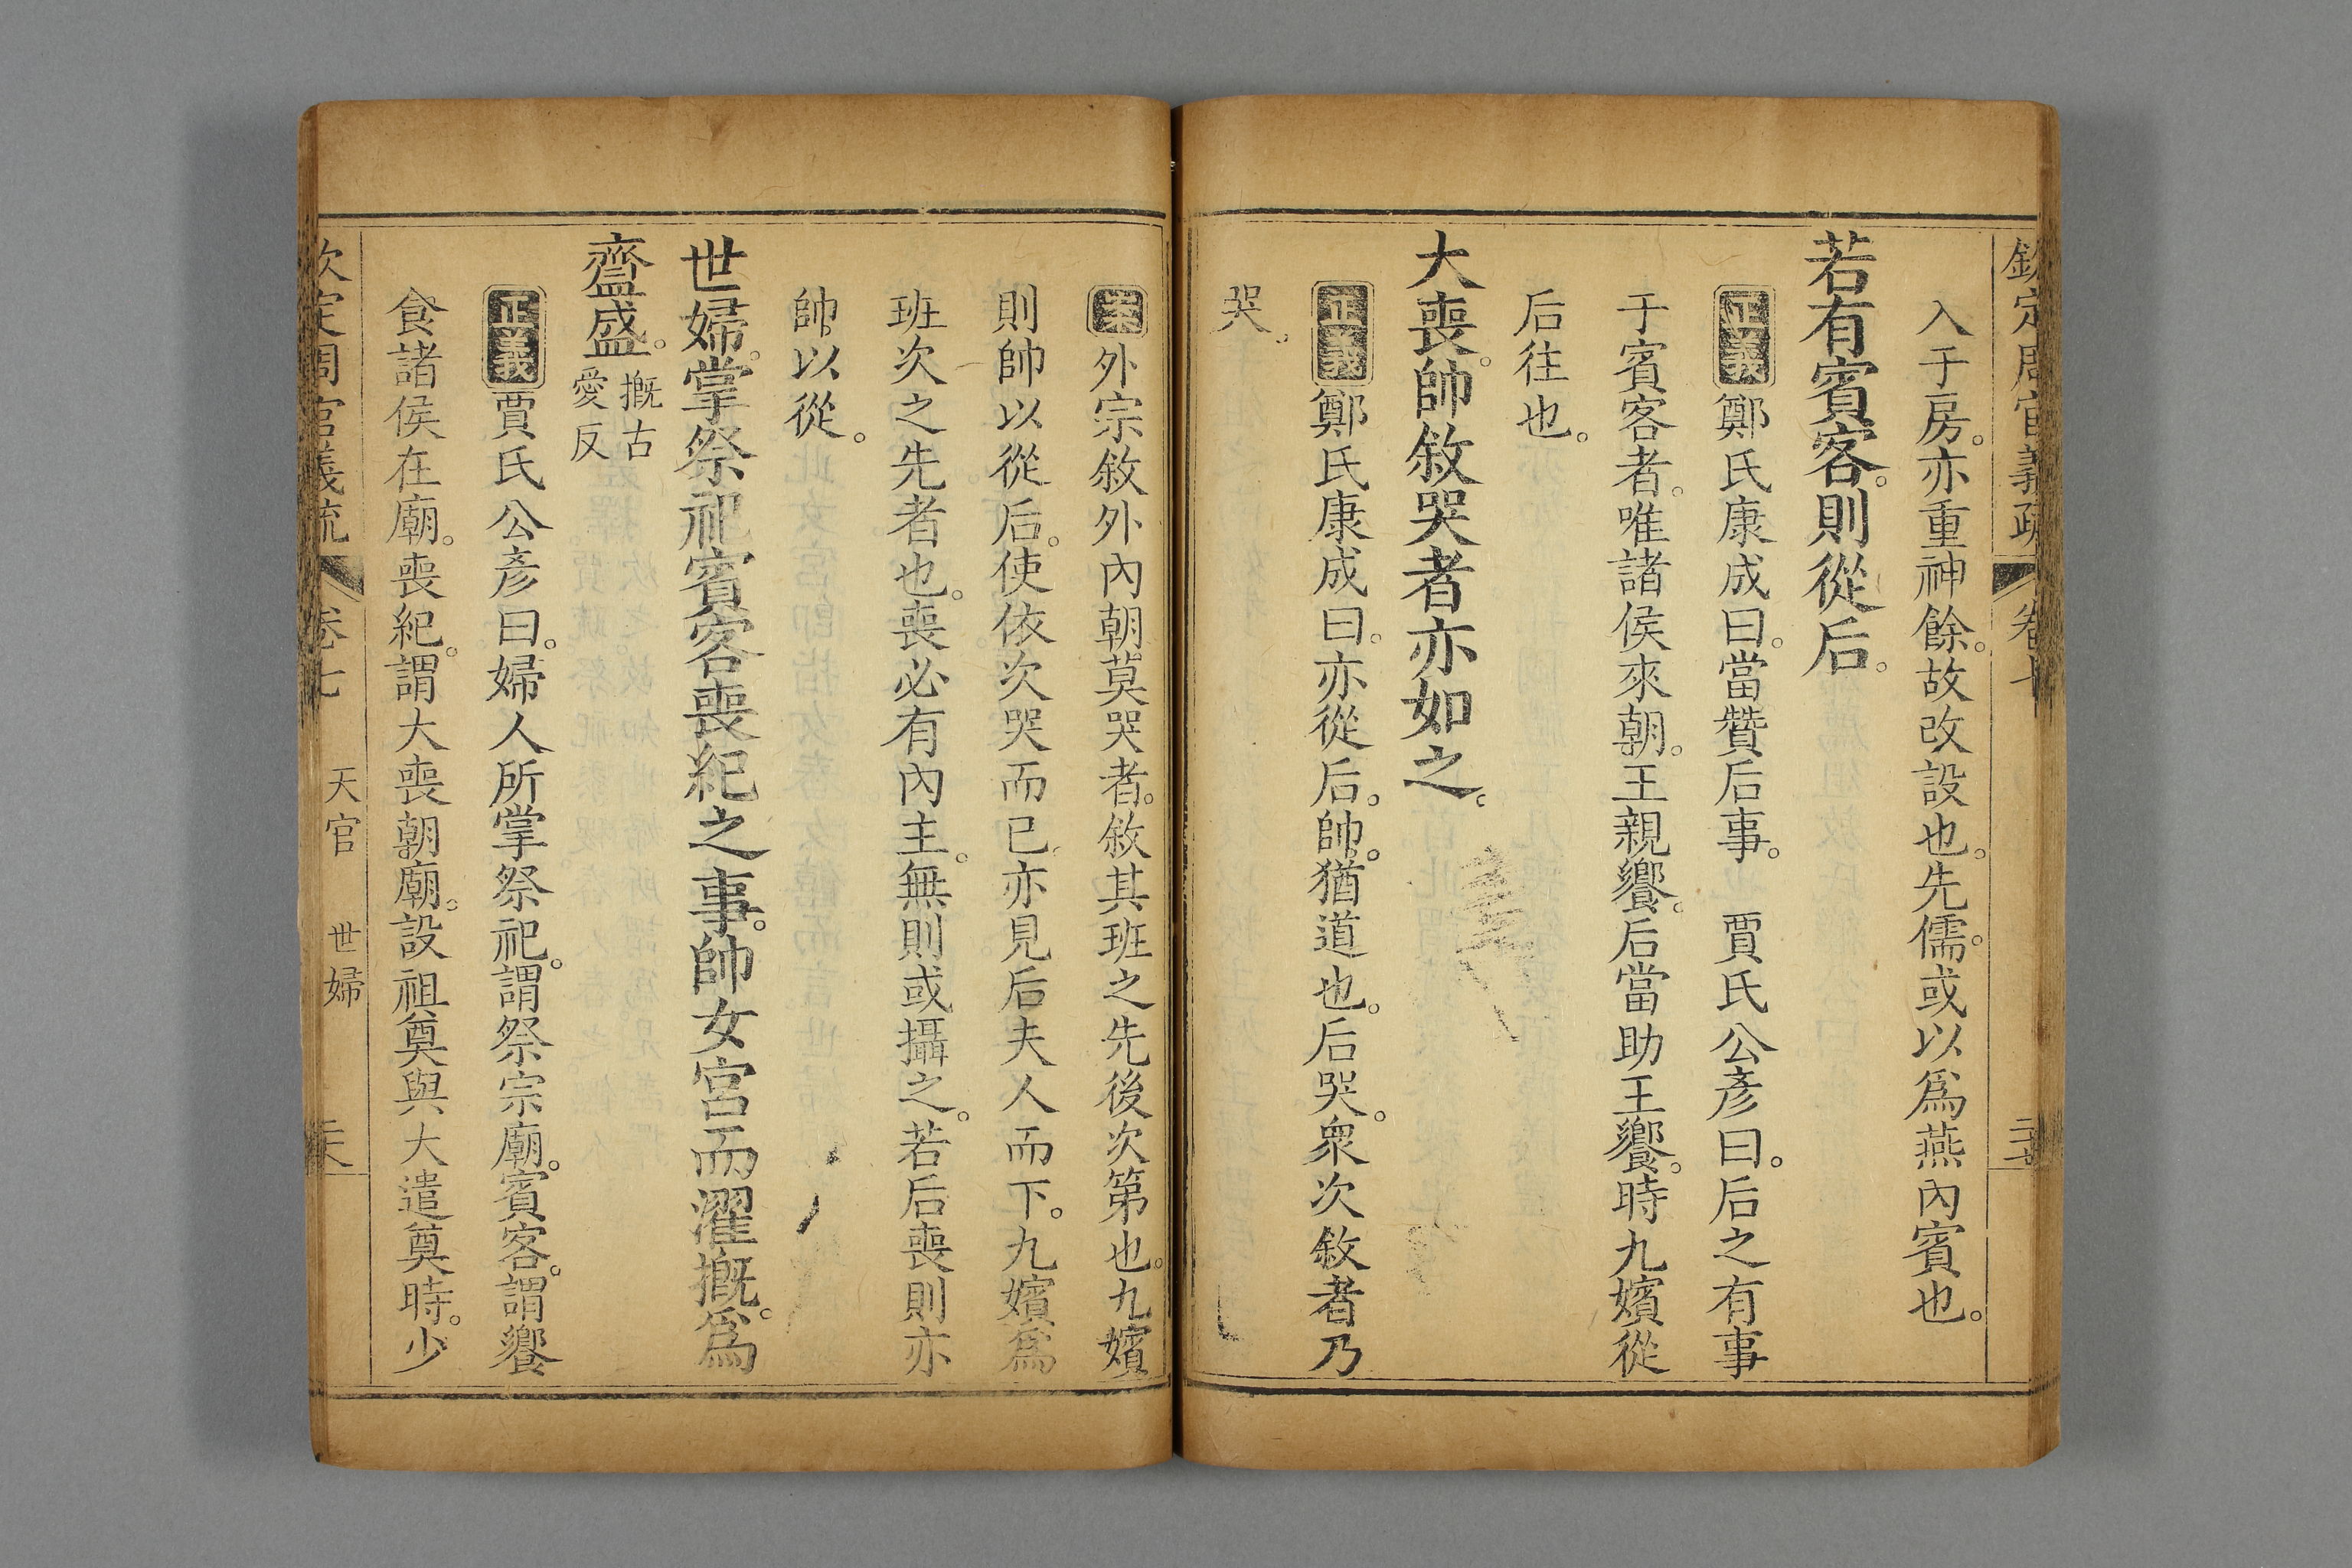 欽定周官義疏 卷七
入于房。亦重神餘。故改設也。先儒。或以爲燕內賓也。
若有賓客。則從后。
正義鄭氏康成曰。當贊后事。 賈氏公彥曰。后之有事
于賓客者。唯諸侯來朝。王親饗。后當助王饗。時九嬪從
后往也。
大喪。帥敘哭者亦如之。
正義鄭氏康成曰。亦從后。帥。猶道也。后哭。衆次敘者乃
哭。
案外宗敘外內朝莫哭者。敘其班之先後次第也。九嬪
則帥以從后。使依次哭而已。亦見后夫人而下。九嬪爲
班次之先者也。喪必有內主。無則或攝之。若后喪則亦
帥以從。
世婦。掌祭祀賓客喪紀之事。帥女宮而濯摡。爲
齍盛。摡古愛反
正義賈氏公彥曰。婦人所掌祭祀。謂祭宗廟。賓客。謂饗
食諸侯在廟。喪紀。謂大喪朝廟。設祖奠與大遣奠時。少
欽定周官義疏 卷七 天官 世婦